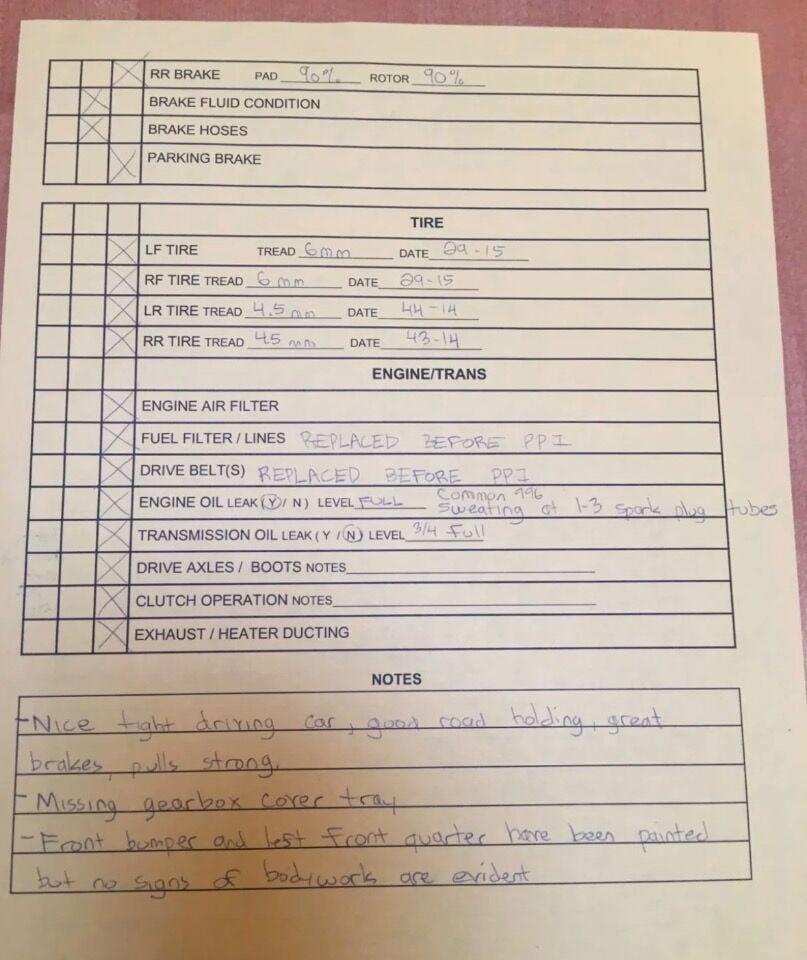 RR BRAKE PAD 90% ROTOR 90%
BRAKE FLUID CONDITION
BRAKE HOSES
PARKING BRAKE
TIRE
LF TIRE TREAD 6mm DATE 29-15
RF TIRE TREAD 6mm DATE 29-15
LR TIRE TREAD 4.5mm DATE 44-14
RR TIRE TREAD 45mm DATE 43-14
ENGINE/TRANS
ENGINE AIR FILTER
FUEL FILTER / LINES REPLACED BEFORE PPI
DRIVE BELT(S) REPLACED BEFORE PPI
Common 996
ENGINE OIL LEAK (Y / N ) LEVEL FULL sweating at 1-3 spark plug tubes
TRANSMISSION OIL LEAK ( Y / N) LEVEL 3/4 Full
DRIVE AXLES / BOOTS NOTES
CLUTCH OPERATION NOTES
EXHAUST / HEATER DUCTING
NOTES
-Nice tight driving car, good road holding, great
brakes, pulls strong.
- Missing gearbox cover tray
- Front bumper and left front quarter have been painted
but no signs of bodywork are evident